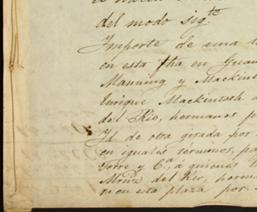 del modo sigte
Importe de una
en esta fha en
Manning y Mackint
Enrique Mackintosh
del Rio, hermanos
Id. de otra girada por
en iguales términos, pa
Torre y Ca. á quienes
del Rio,
en esta plaza por